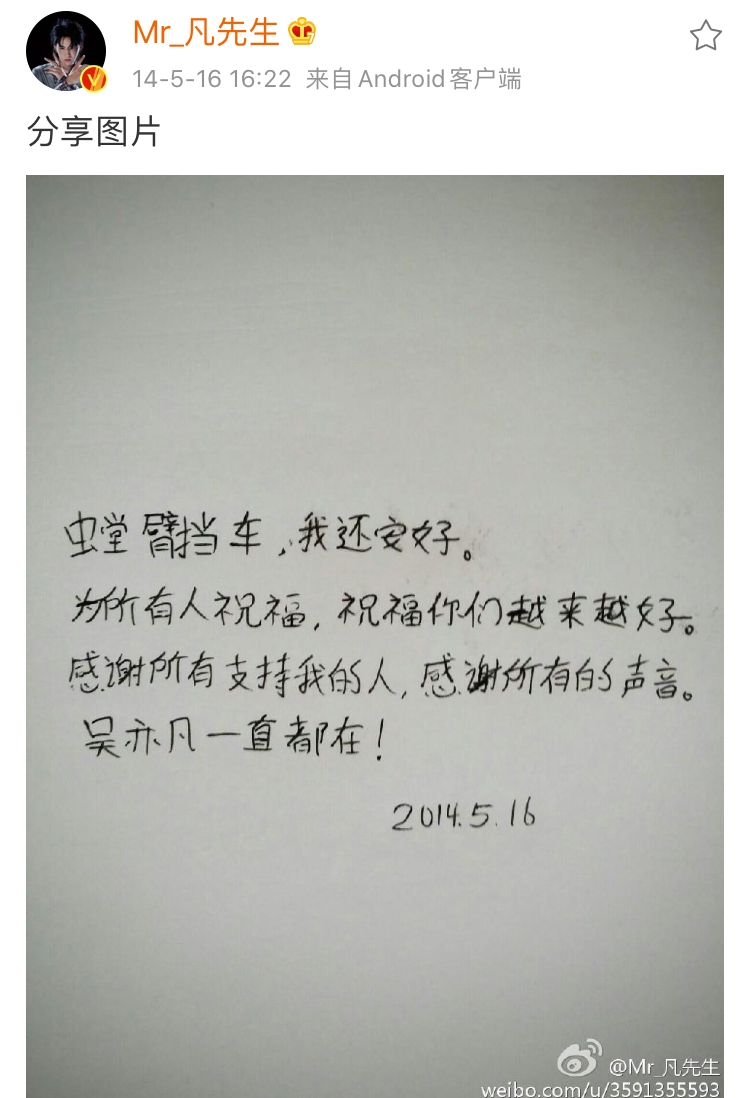 Mr_凡先生
14-5-16 16:22 来自Android客户端
分享图片
虫堂臂挡车，我还安好。
为所有人祝福，祝福你们越来越好。
感谢所有支持我的人，感谢所有的声音。
吴亦凡一直都在！
2014.5.16
@Mr_凡先生
weibo.com/u/3591355593